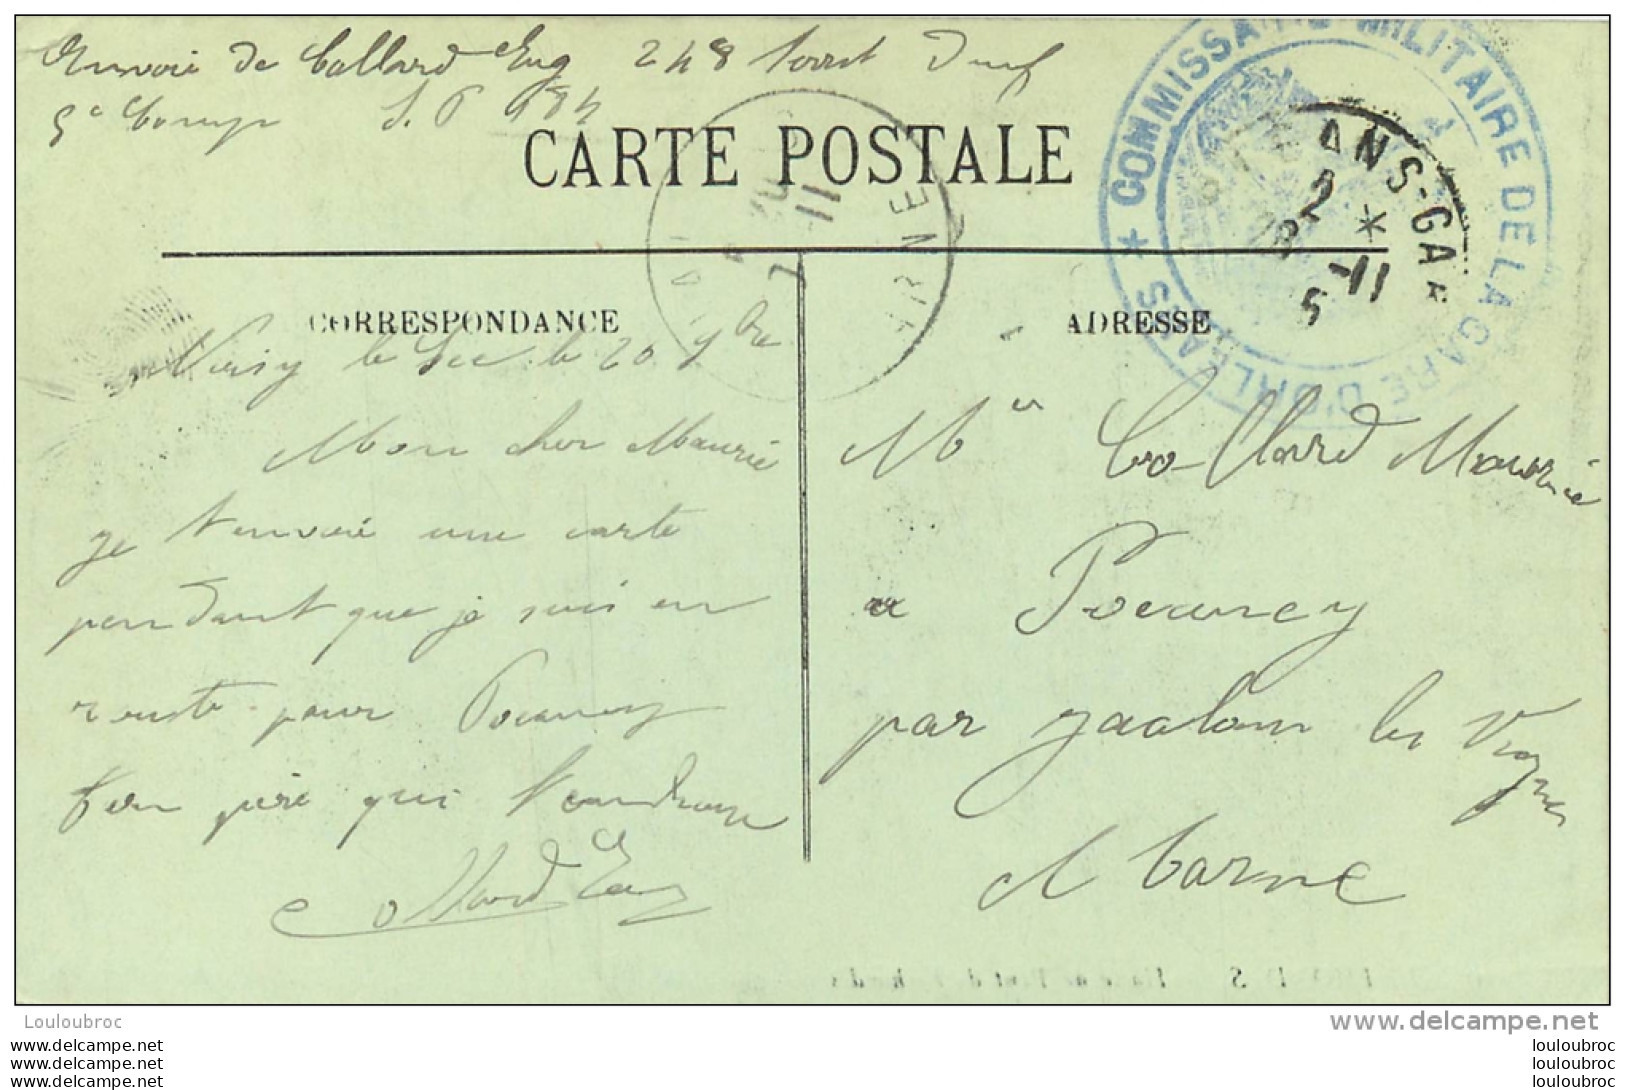 Envoie de Collard Eug 248
5e Comp S. P
CARTE POSTALE
COMMISSAIRE MILITAIRE DE LA GARE D'ORLEANS
ANS-GAR
2 *
-11
5
7
11
RNE
CORRESPONDANCE
ADRESSE
le Sec le 20 9bre
Mon cher Maurice
je t'envoie une carte
pendant que je suis en
route pour Pocancy
ton père qui t'embrasse
Collard Eug
Mr Collard Maurice
a Pocancy
par Jaalons les Vignes
Marne
Louloubroc
www.delcampe.net
www.delcampe.net
www.delcampe.net
www.delcampe.net
louloubroc
louloubroc
louloubroc